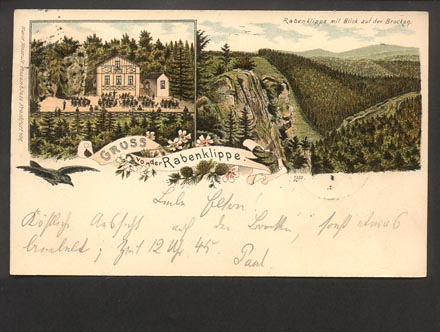 Rabenklippe mit Blick auf den Brocken.
GRUSS
von der Rabenklippe.
Liebe Eltern!
Aussicht auf den Brocken, sonst etwas
Zeit 12 Uhr 45
Paul